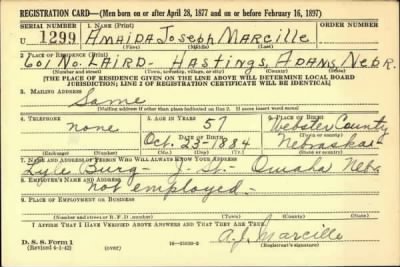 REGISTRATION CARD—(Men born on or after April 28, 1877 and on or before February 16, 1897)
SERIAL NUMBER 1. NAME (Print) ORDER NUMBER
U 1299 Amaida Joseph Marcille
(First) (Middle) (Last)
2. PLACE OF RESIDENCE (Print)
601 No. LAIRD - Hastings, Adams, Nebr.
(Number and street) (Town, township, village, or city) (County) (State)
[THE PLACE OF RESIDENCE GIVEN ON THE LINE ABOVE WILL DETERMINE LOCAL BOARD
JURISDICTION; LINE 2 OF REGISTRATION CERTIFICATE WILL BE IDENTICAL]
3. MAILING ADDRESS
Same
[Mailing address if other than place indicated on line 2. If same insert word same]
4. TELEPHONE 5. AGE IN YEARS 6. PLACE OF BIRTH
none 57 Webster County
DATE OF BIRTH (Town or county)
Oct. 23 - 1884 Nebraska
(Exchange) (Number) (Mo.) (Day) (Yr.) (State or country)
7. NAME AND ADDRESS OF PERSON WHO WILL ALWAYS KNOW YOUR ADDRESS
Lyle Burg - J - St. Omaha Nebr.
8. EMPLOYER'S NAME AND ADDRESS
not employed -
9. PLACE OF EMPLOYMENT OR BUSINESS
(Number and street or R. F. D. number) (Town) (County) (State)
I AFFIRM THAT I HAVE VERIFIED ABOVE ANSWERS AND THAT THEY ARE TRUE.
D. S. S. Form 1 A. J. Marcille
(Revised 4-1-42) (over) (Registrant's signature)